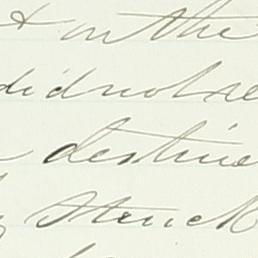 & on the
did not se
destine
struck